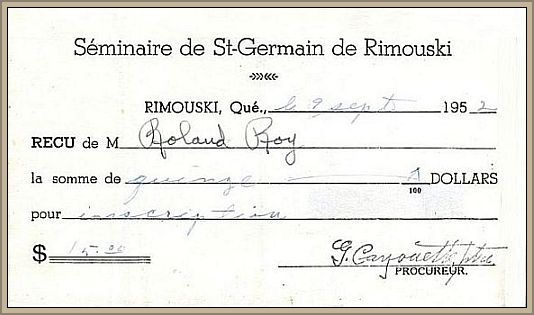 Séminaire de St-Germain de Rimouski
RIMOUSKI, Qué., le 9 sept 1952
RECU de M Roland Roy
la somme de quinze 100 DOLLARS
pour inscription
$ 15.00
G. Cayouette ptre
PROCUREUR.